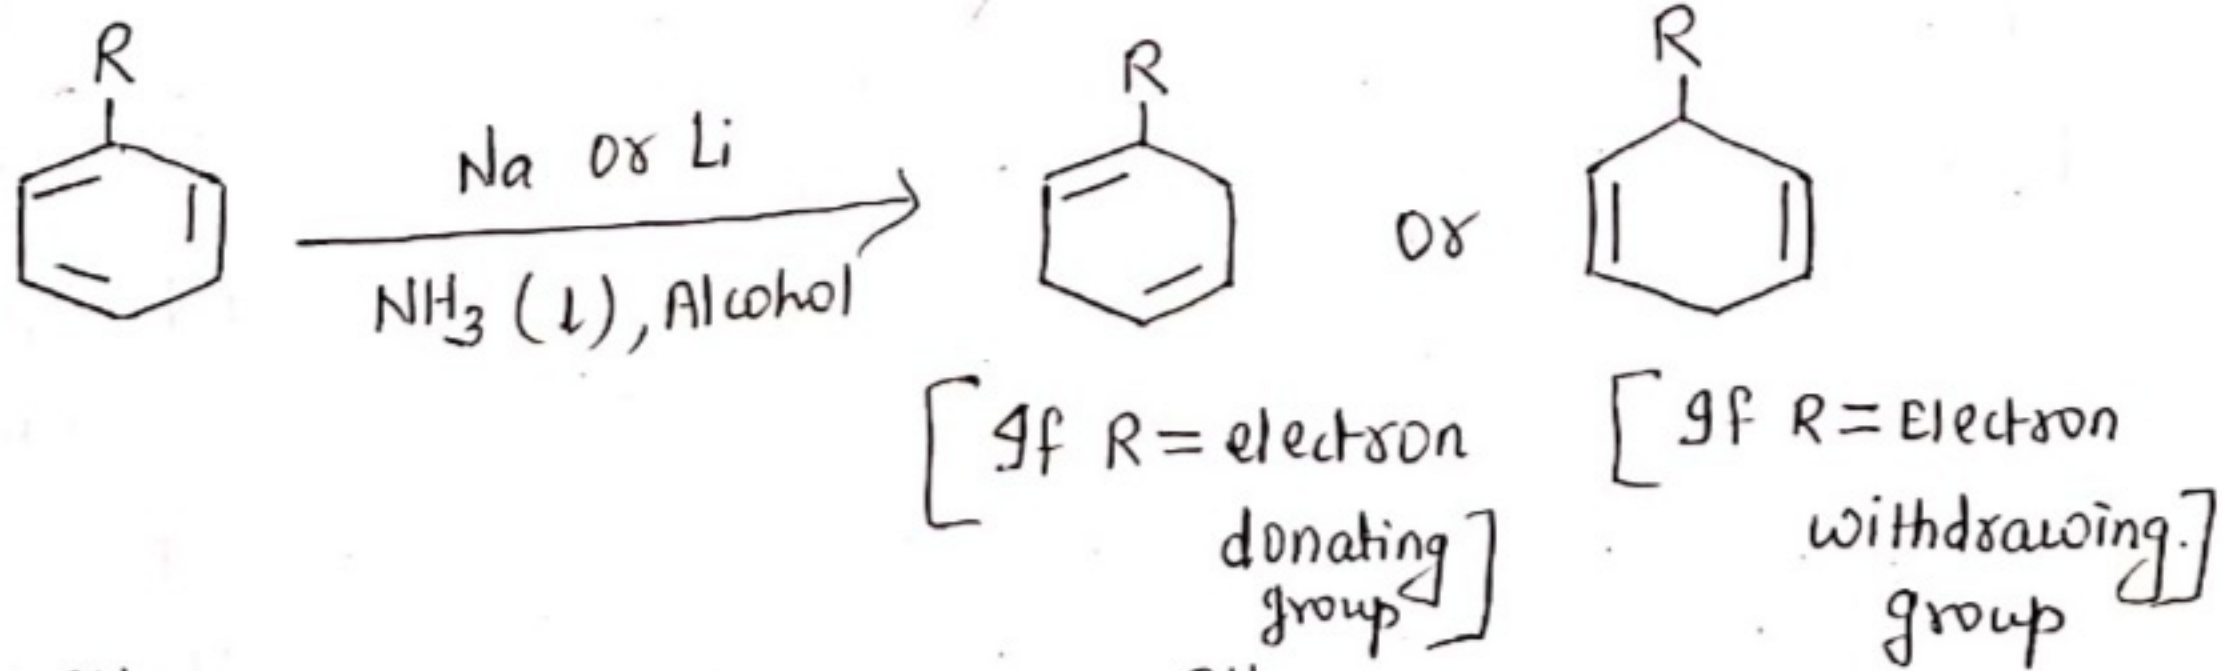 R
R
R
Na or Li
NH₃ (l), Alcohol
or
[If R = electron
donating
group]
[If R = Electron
withdrawing.]
group